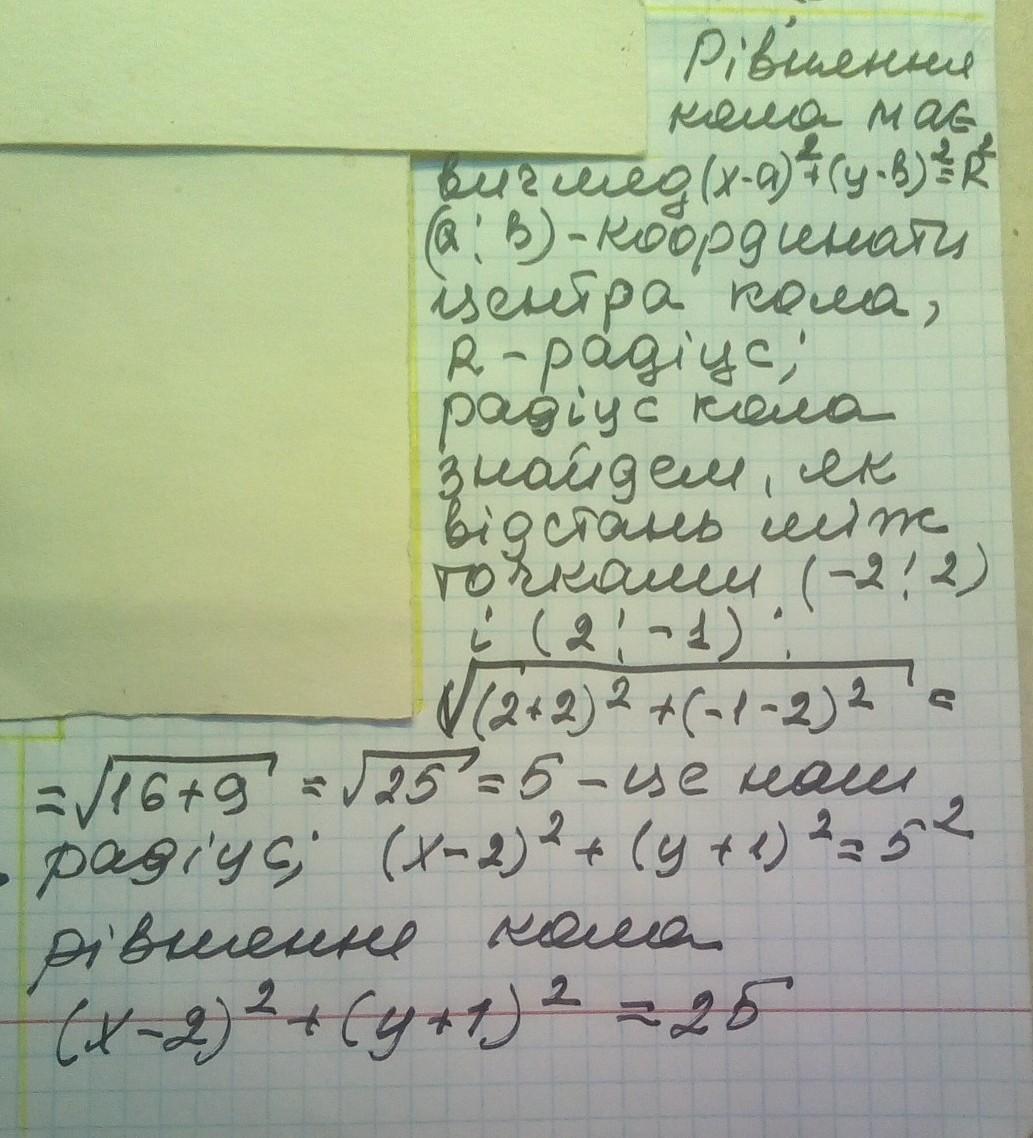 Рівняння
кола має
вигляд (x-a)²+(y-в)²=R²
(a; в) - координати
центра кола,
R - радіус;
радіус кола
знайдем, як
відстань між
точками (-2; 2)
і (2; -1) :
√(2+2)² + (-1-2)² =
= √16+9 = √25 = 5 - це наш
радіус; (x-2)² + (y+1)² = 5²
рівняння кола
(x-2)² + (y+1)² = 25